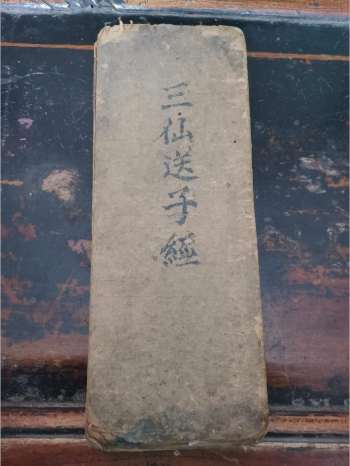 三仙送子經